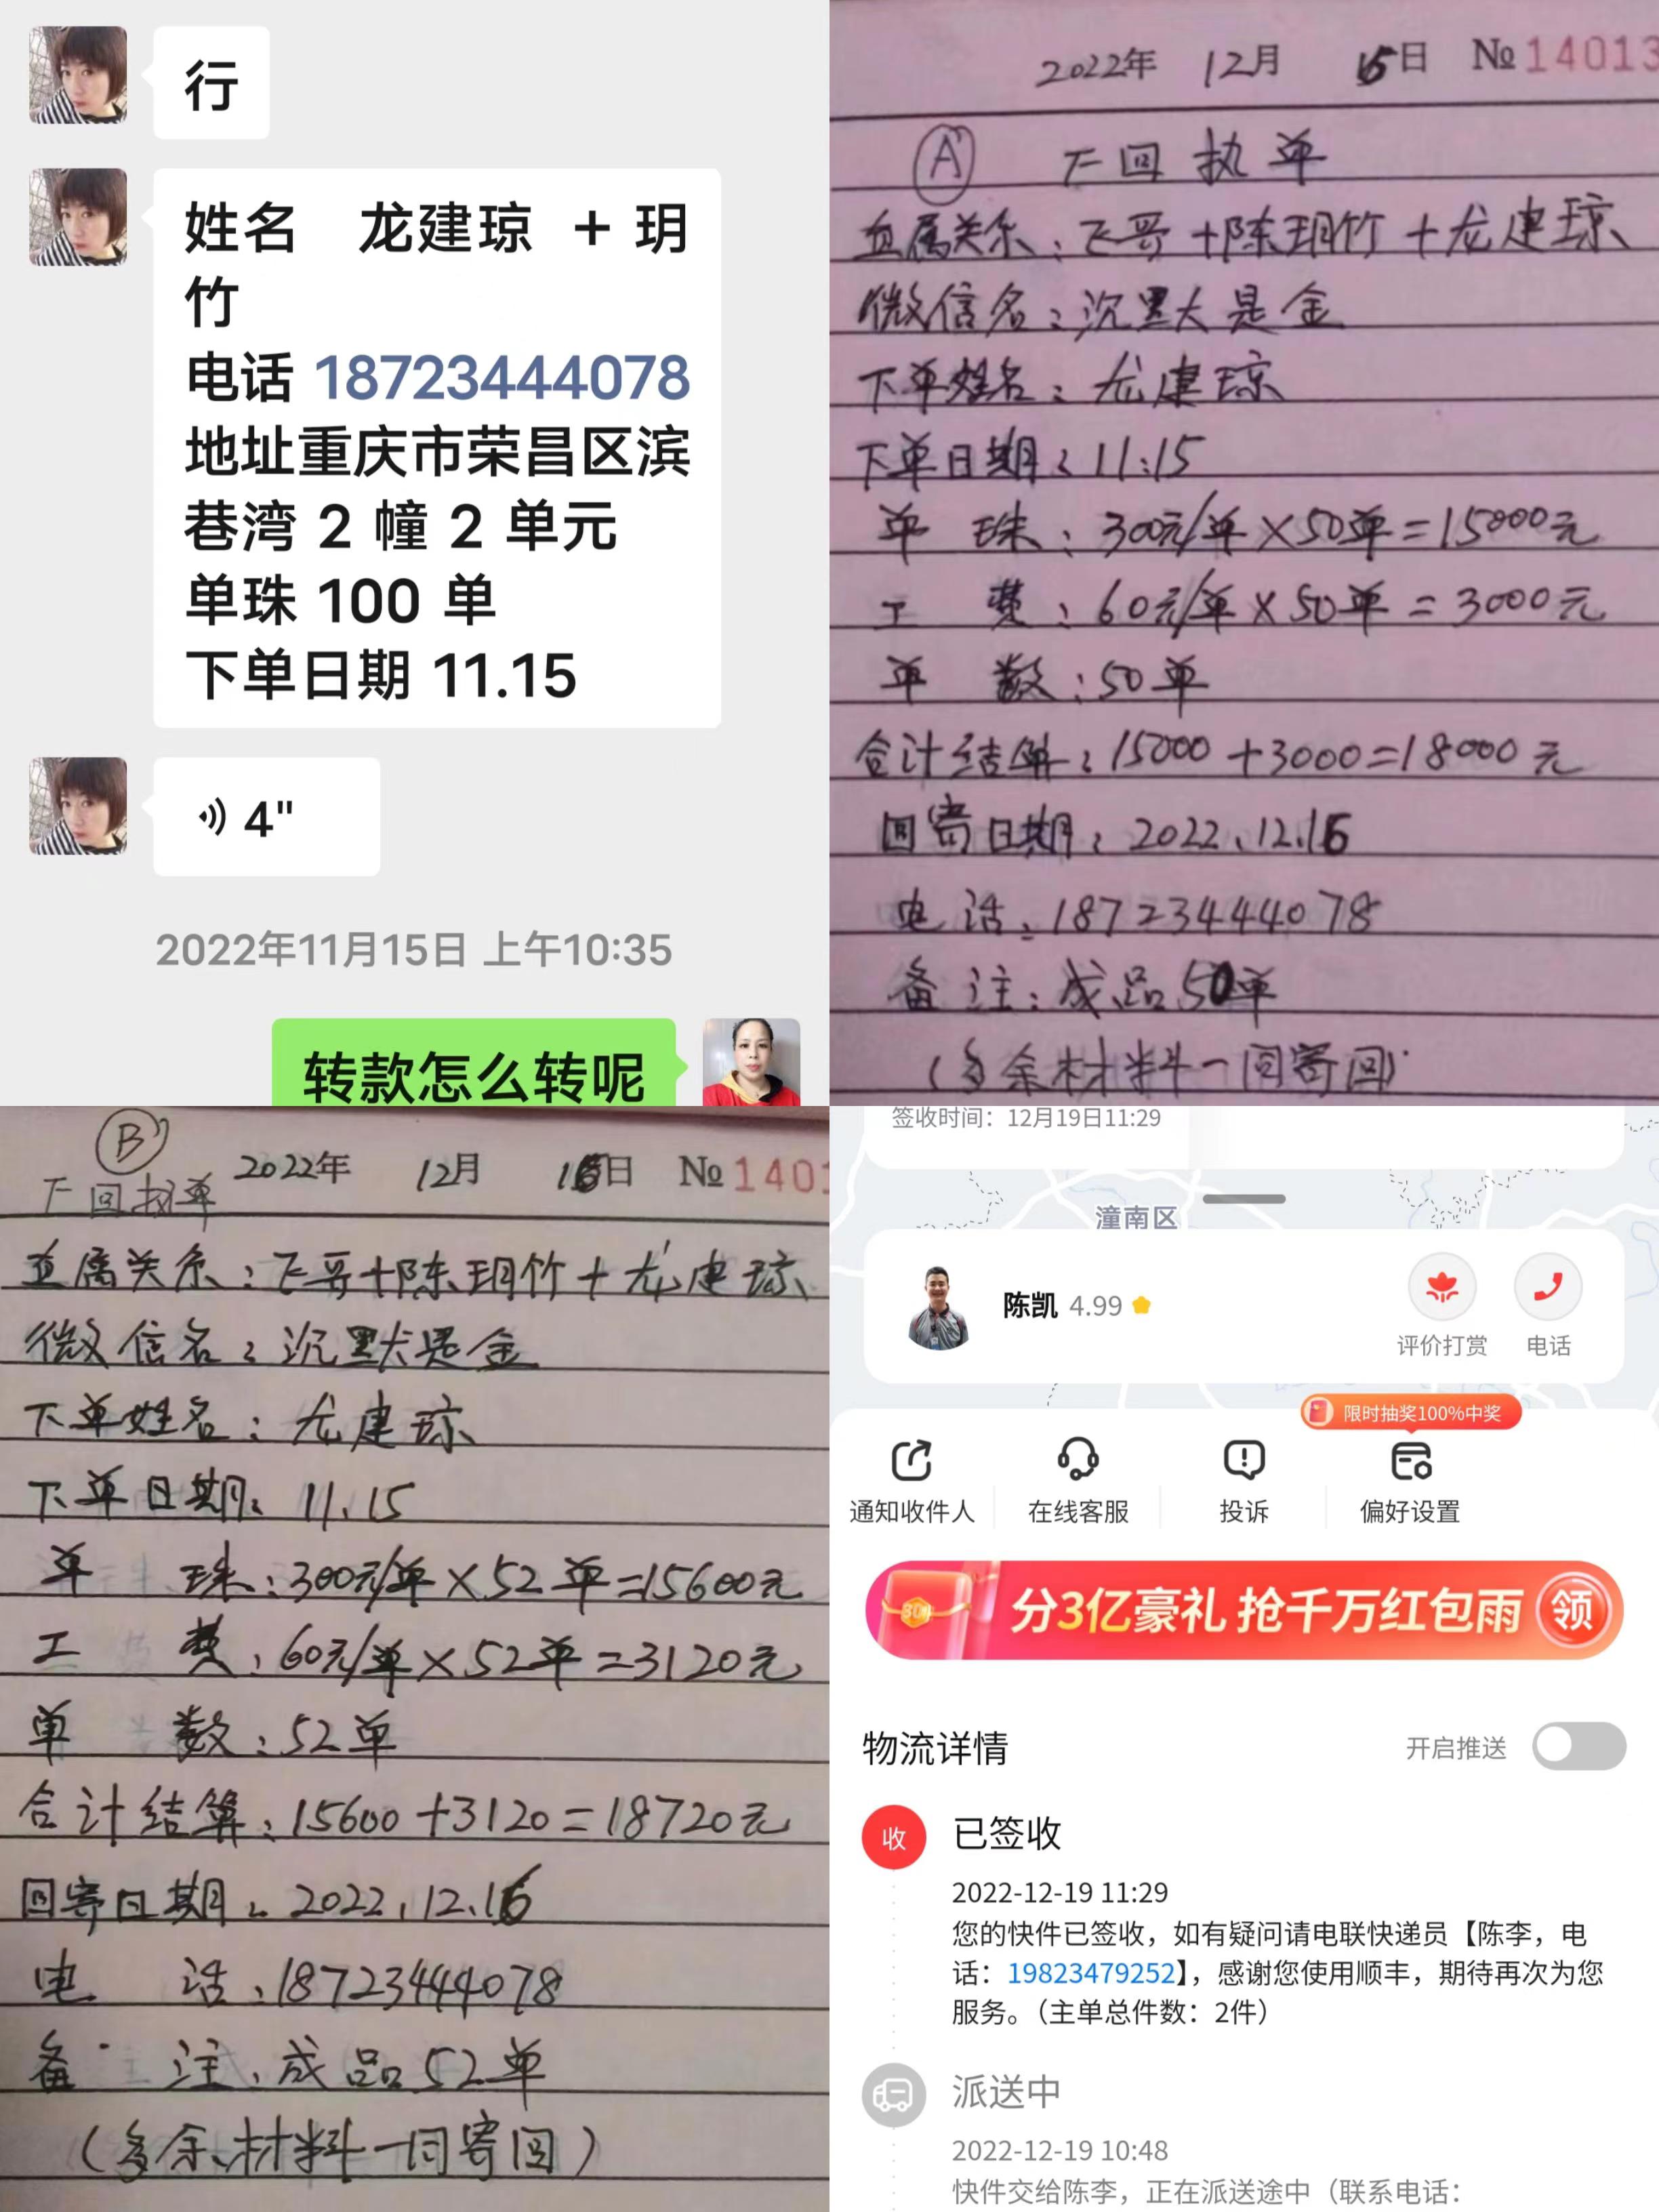 行
姓名 龙建琼 + 玥
竹
电话 18723444078
地址重庆市荣昌区滨
巷湾 2 幢 2 单元
单珠 100 单
下单日期 11.15
4"
2022年11月15日 上午10:35
转款怎么转呢
2022年 12月 15日 №14013
A 下回执单
直属关系：飞哥+陈玥竹+龙建琼
微信名：沉默是金
下单姓名：龙建琼
下单日期：11.15
单 珠：300元/单×50单=15000元
工 费：60元/单×50单=3000元
单 数：50单
合计结算：15000+3000=18000元
回寄日期：2022.12.16
电话：18723444078
备注：成品50单
（多余材料一同寄回）
B
2022年 12月 16日 №1401
下回执单
直属关系：飞哥+陈玥竹+龙建琼
微信名：沉默是金
下单姓名：龙建琼
下单日期：11.15
单 珠：300元/单×52单=15600元
工 费：60元/单×52单=3120元
单 数：52单
合计结算：15600+3120=18720元
回寄日期：2022.12.16
电 话：18723444078
备 注：成品52单
（多余材料一同寄回）
签收时间：12月19日11:29
潼南区
陈凯 4.99
评价打赏 电话
限时抽奖100%中奖
通知收件人 在线客服 投诉 偏好设置
分3亿豪礼 抢千万红包雨 领
物流详情 开启推送
收 已签收
2022-12-19 11:29
您的快件已签收，如有疑问请电联快递员【陈李，电
话：19823479252】，感谢您使用顺丰，期待再次为您
服务。（主单总件数：2件）
派送中
2022-12-19 10:48
快件交给陈李，正在派送途中（联系电话：